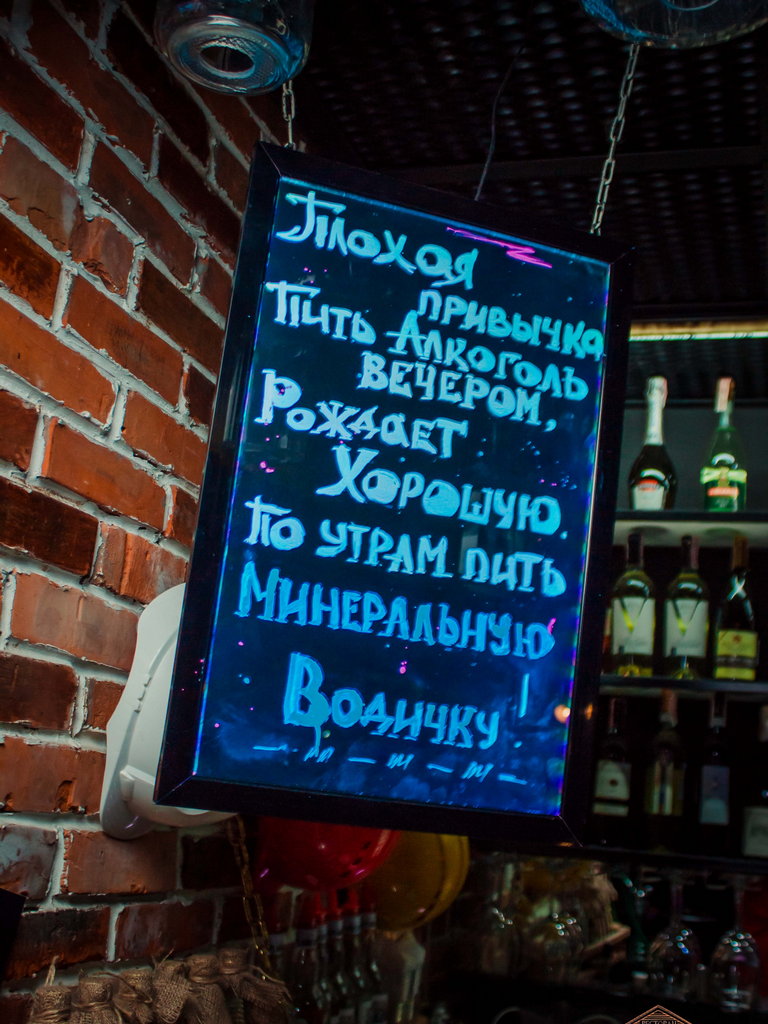 Плохая
привычка
Пить Алкоголь
вечером,
Рождает
Хорошую.
По утрам пить
Минеральную
Водичку!
РЕСТОРАН